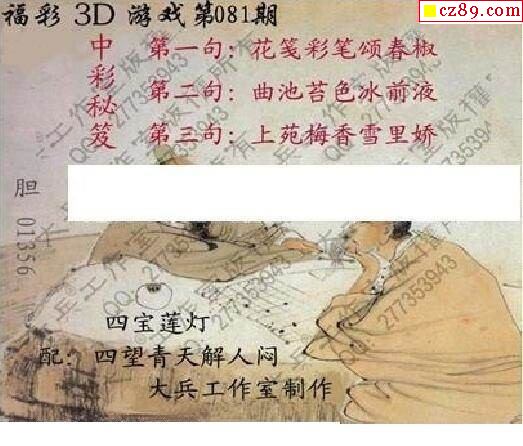 福彩 3D 游戏第081期
cz89.com
中彩秘笈
第一句：花笺彩笔颂春椒
第二句：曲池苔色冰前液
第三句：上苑梅香雪里娇
胆 01356
四宝莲灯
配：四望青天解人闷
大兵工作室制作
大兵工作室版權所有
QQ:277353943